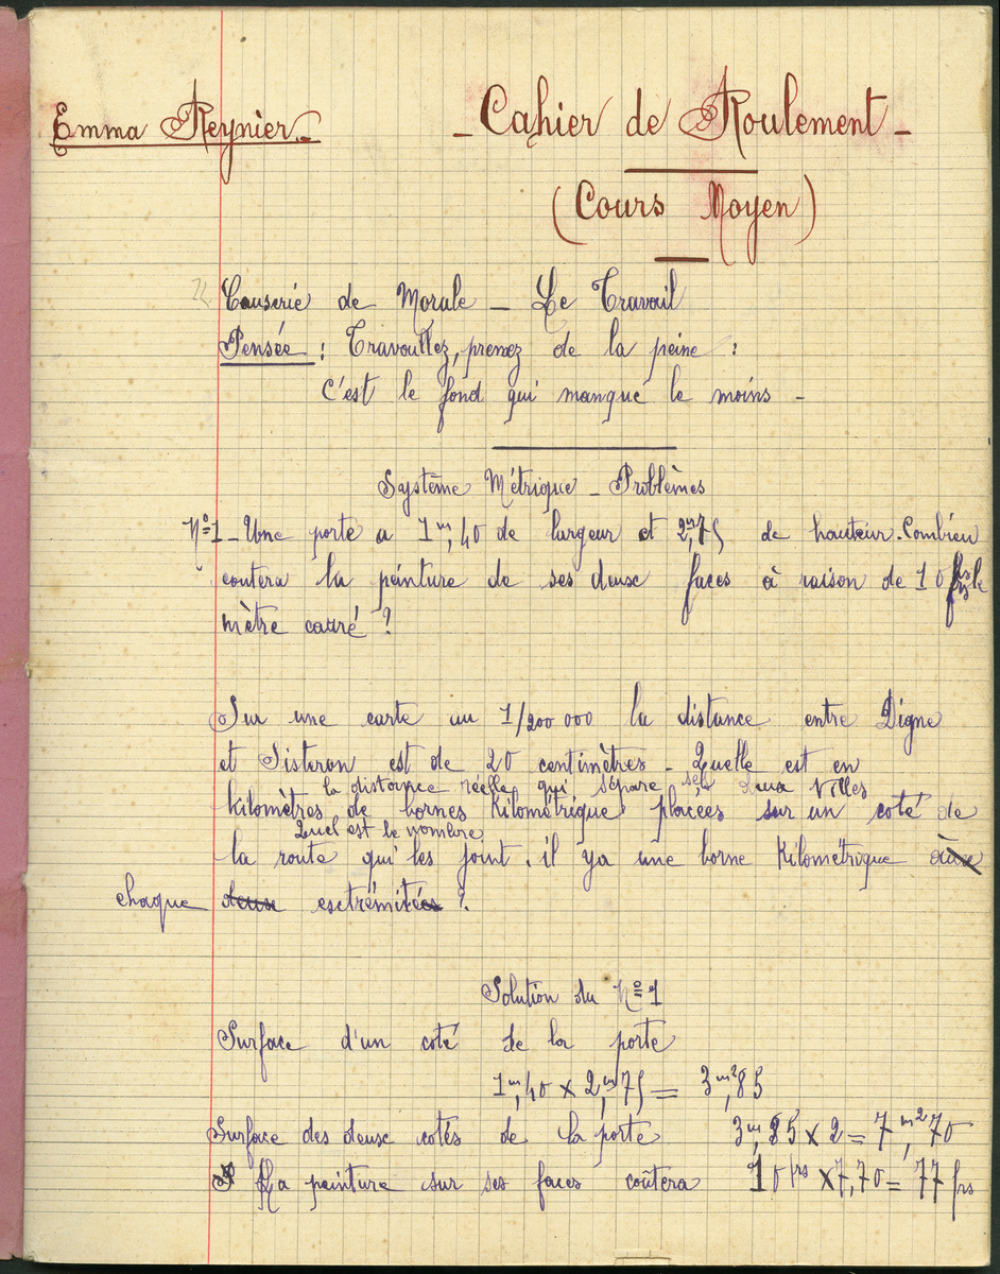 Emma Reynier_
_ Cahier de Roulement _
(Cours Moyen)
Causerie de Morale _ Le Travail
Pensée : Travaillez, prenez de la peine :
C'est le fond qui manque le moins -
Système Métrique _ Problèmes
N°1_ Une porte a 1m,40 de largeur et 2m,75 de hauteur. Combien
coutera la peinture de ses deux faces à raison de 10 frs le
mètre carré ?
Sur une carte au 1/200 000 la distance entre Digne
et Sisteron est de 20 centimètres - Quelle est en
la distance réelle qui sépare ses deux villes
kilomètres de bornes Kilométrique placées sur un coté de
Quel est le nombre
la route qui les joint. il y a une borne Kilométrique à
chaque deux extrémitées ?
Solution du N°1
Surface d'un coté de la porte
1m,40 x 2m,75 = 3m²,85
Surface des deux cotés de la porte 3m,85 x 2 = 7m²,70
La peinture sur ses faces coûtera 10frs x 7,70 = 77frs